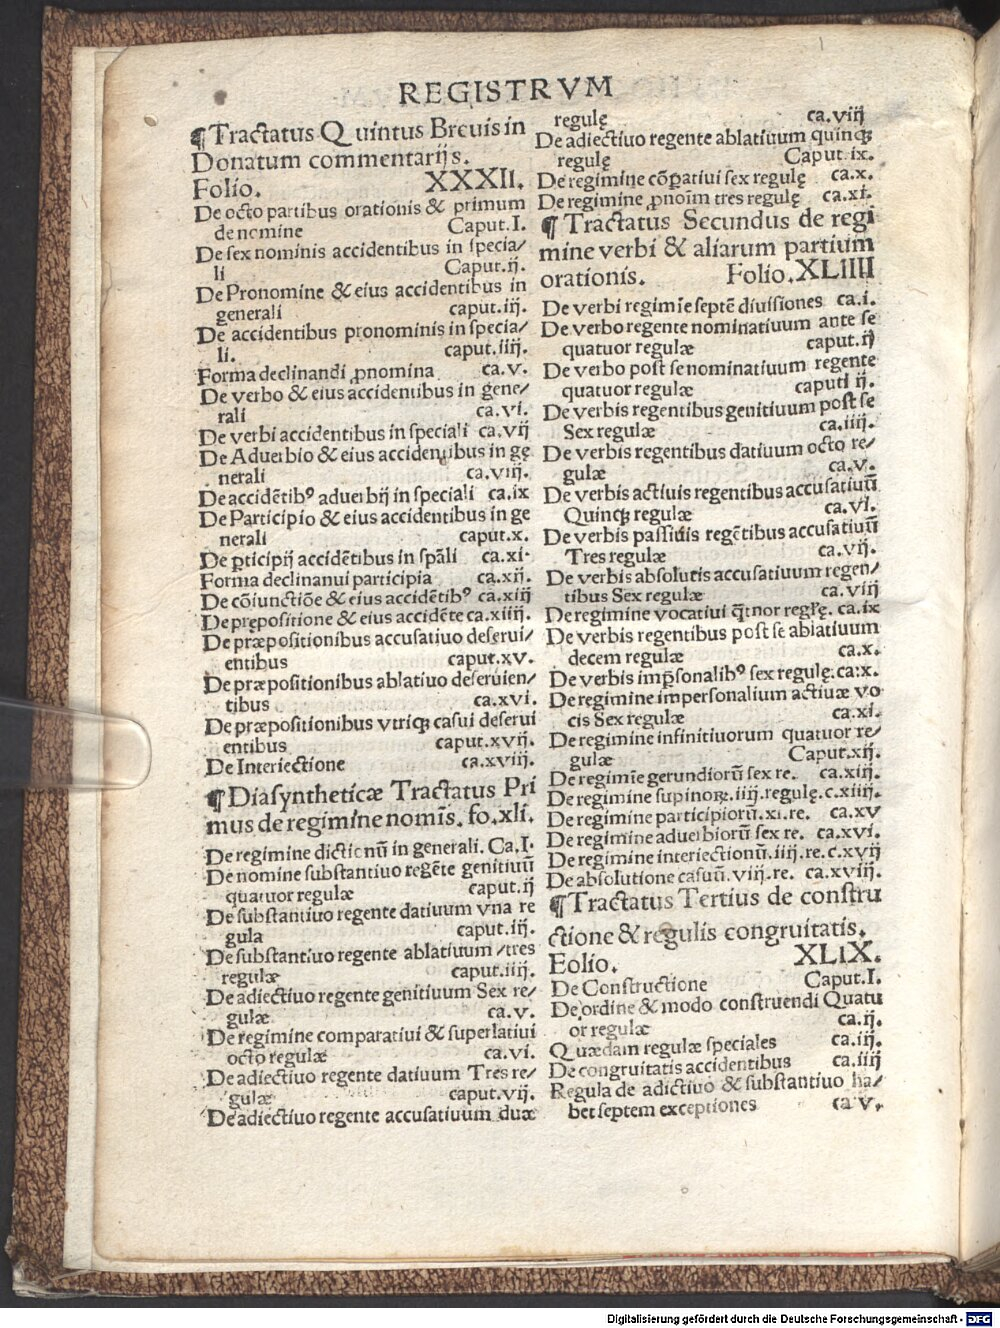 REGISTRVM
¶ Tractatus Quintus Breuis in
Donatum commentarijs.
Folio. XXXII.
De octo partibus orationis & primum
de nomine Caput.I.
De sex nominis accidentibus in specia/
li Caput.ij.
De Pronomine & eius accidentibus in
generali caput.iij.
De accidentibus pronominis in specia/
li. caput.iiij.
Forma declinandi ꝓnomina ca.v.
De verbo & eius accidentibus in gene/
rali ca.vi.
De verbi accidentibus in speciali ca.vij
De Aduerbio & eius accidentibus in gę
nerali ca.viij.
De accidētibꝰ aduerbij in speciali ca.ix
De Participio & eius accidentibus in ge
nerali caput.x.
De ꝑticipij accidētibus in spāli ca.xi.
Forma declinanui participia ca.xij.
De cōiunctiōe & eius accidētibꝰ ca.xiij
De prępositione & eius accidēte ca.xiiij.
De præpositionibus accusatiuo deserui/
entibus caput.xv.
De præpositionibus ablatiuo deseruien/
tibus ca.xvi.
De præpositionibus vtriqꝫ casui deserui
entibus caput.xvij.
De Interiectione ca.xviij.
¶ Diasyntheticæ Tractatus Pri
mus de regimine nomīs. fo.xli.
De regimine dictionū in generali. Ca.I.
De nomine substantiuo regēte genitiuū
quatuor regulæ caput.ij
De substantiuo regente datiuum vna re
gula caput.iij.
De substantiuo regente ablatiuum /tres
regulæ caput.iiij.
De adiectiuo regente genitiuum Sex re/
gulæ ca.v.
De regimine comparatiui & superlatiui
octo regulæ ca.vi.
De adiectiuo regente datiuum Tres re/
gulæ caput.vij.
De adiectiuo regente accusatiuum duæ
regulę ca.viij
De adiectiuo regente ablatiuum quinqꝫ
regulę Caput.ix.
De regimine cōꝑatiui sex regulę ca.x.
De regimine ꝓnoīm tres regulę ca.xi.
¶ Tractatus Secundus de regi
mine verbi & aliarum partium
orationis. Folio.XLIIII
De verbi regimīe septē diuisiones ca.i.
De verbo regente nominatiuum ante se
quatuor regulæ caput.ij
De verbo post se nominatiuum regente
quatuor regulæ caputi ij.
De verbis regentibus genitiuum post se
Sex regulæ ca.iiij.
De verbis regentibus datiuum octo re/
gulæ ca.v.
De verbis actiuis regentibus accusatiuū
Quinqꝫ regulæ ca.vi.
De verbis passiuis regētibus accusatiuū
Tres regulæ ca.vij.
De verbis absolutis accusatiuum regen/
tibus Sex regulæ ca.viij
De regimine vocatiui q̄tuor regłę. ca.ix
De verbis regentibus post se ablatiuum
decem regulæ ca.x.
De verbis imꝑsonalibꝰ sex regulę.ca:x.
De regimine impersonalium actiuæ vo
cis Sex regulæ ca.xi.
De regimine infinitiuorum quatuor re/
gulæ Caput.xij.
De regimīe gerundiorū sex re. ca.xiij.
De regimine supinoꝝ.iiij.regulę.c.xiiij.
De regimine participiorū.xi.re. ca.xv
De regimine aduerbiorū sex re. ca.xvi.
De regimine interiectionū.iiij.re.c.xvij
De absolutione casuū.viij.re. ca.xviij.
¶ Tractatus Tertius de constru
ctione & regulis congruitatis.
Eolio. XLIX.
De Constructione Caput.I.
De ordine & modo construendi Quatu
or regulæ ca.ij.
Quædam regulæ speciales ca.iij.
De congruitatis accidentibus ca.iiij
Regula de adictiuo & substantiuo ha/
bet septem exceptiones ca v.
Digitalisierung gefördert durch die Deutsche Forschungsgemeinschaft - DFG